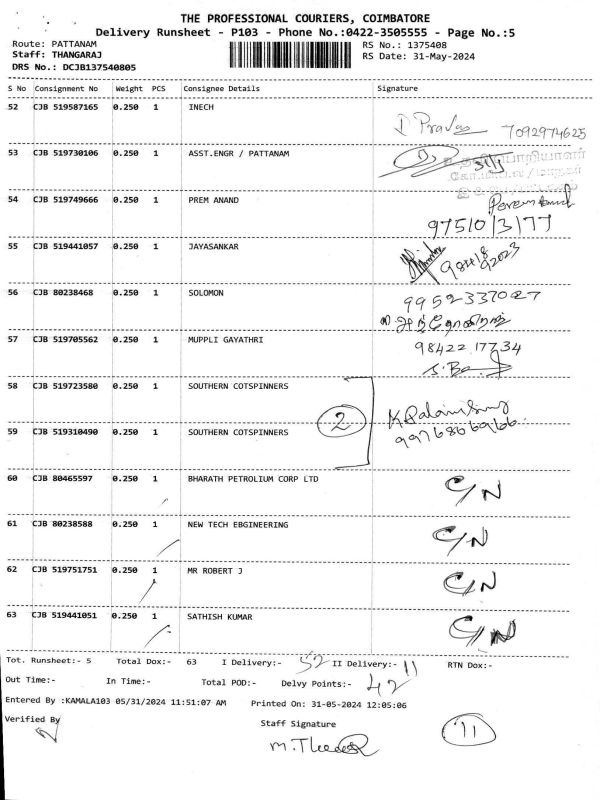 THE PROFESSIONAL COURIERS, COIMBATORE
Delivery Runsheet - P103 - Phone No.:0422-3505555 - Page No.:5
Route: PATTANAM RS No.: 1375408
Staff: THANGARAJ RS Date: 31-May-2024
DRS No.: DCJB137540805
S No Consignment No Weight PCS Consignee Details Signature
52 CJB 519587165 0.250 1 INECH
7092974625
53 CJB 519730106 0.250 1 ASST.ENGR / PATTANAM
54 CJB 519749666 0.250 1 PREM ANAND
9751013177
55 CJB 519441057 0.250 1 JAYASANKAR
9841892023
56 CJB 80238468 0.250 1 SOLOMON
9952337027
57 CJB 519705562 0.250 1 MUPPLI GAYATHRI
98422 17734
58 CJB 519723580 0.250 1 SOUTHERN COTSPINNERS
2
59 CJB 519310490 0.250 1 SOUTHERN COTSPINNERS
60 CJB 80465597 0.250 1 BHARATH PETROLIUM CORP LTD C/N
61 CJB 80238588 0.250 1 NEW TECH EBGINEERING C/N
62 CJB 519751751 0.250 1 MR ROBERT J C/N
63 CJB 519441051 0.250 1 SATHISH KUMAR C/N
Tot. Runsheet:- 5 Total Dox:- 63 I Delivery:- 52 II Delivery:- 11 RTN Dox:-
Out Time:- In Time:- Total POD:- Delvy Points:- 42
Entered By :KAMALA103 05/31/2024 11:51:07 AM Printed On: 31-05-2024 12:05:06
Verified By Staff Signature 11